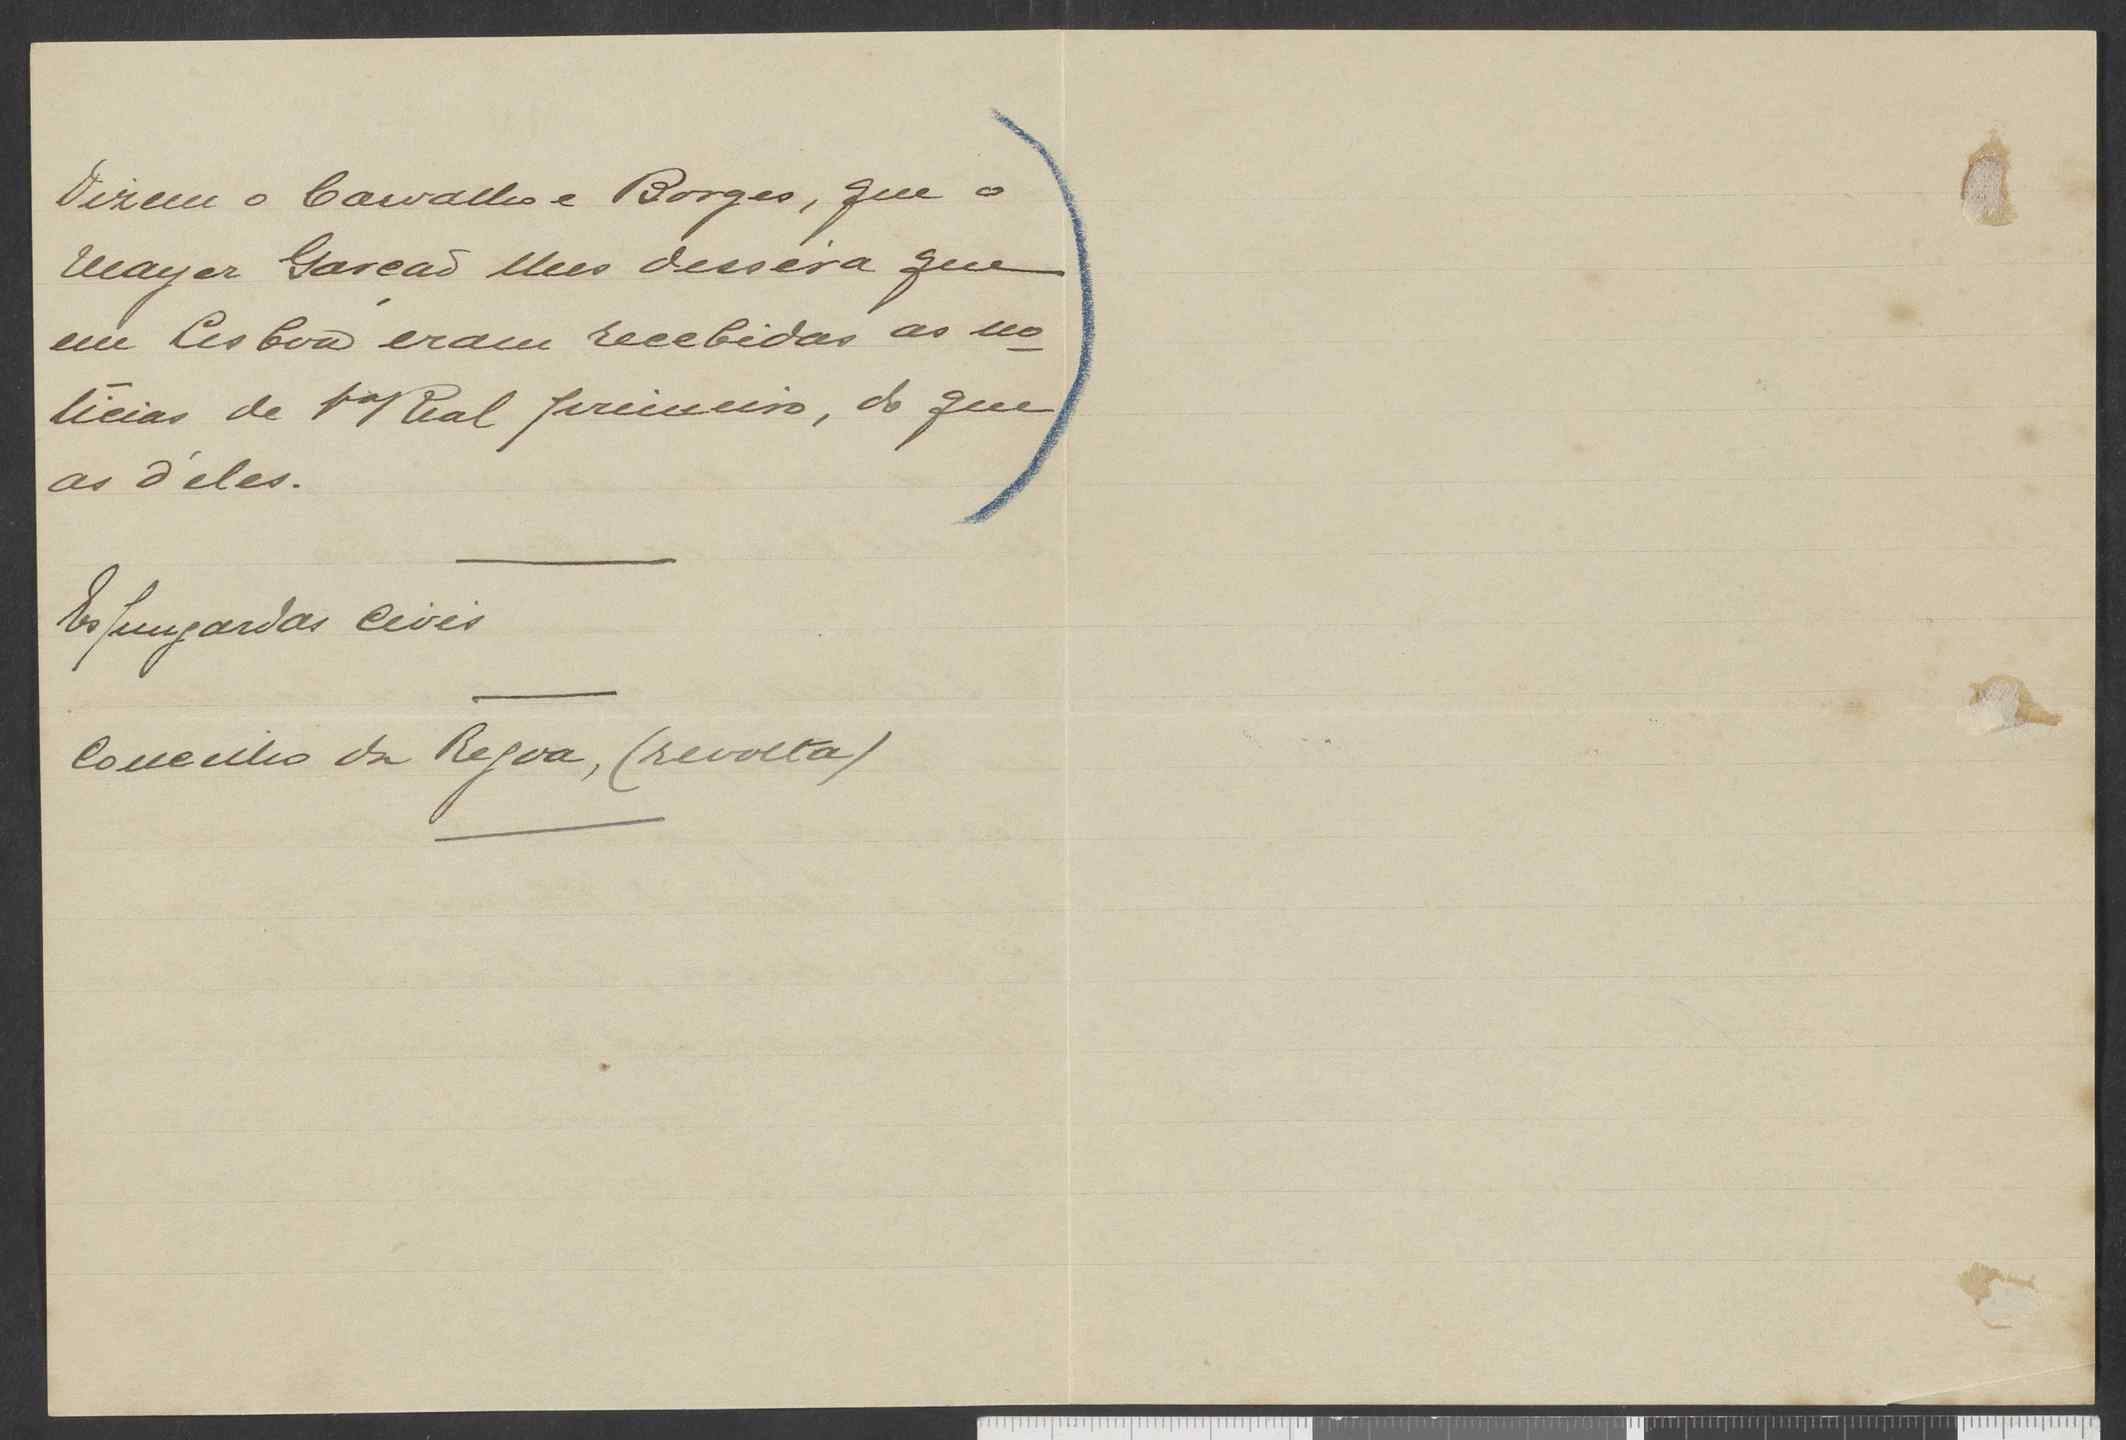 Dizem o Carvalho e Borges, que o
Mayer Garção lhes desséra que
em Lisboa eram recebidas as no-
ticias de Vª Real primeiro, do que
as d'eles.
Espingardas civis
Concelho da Regoa, (revolta)